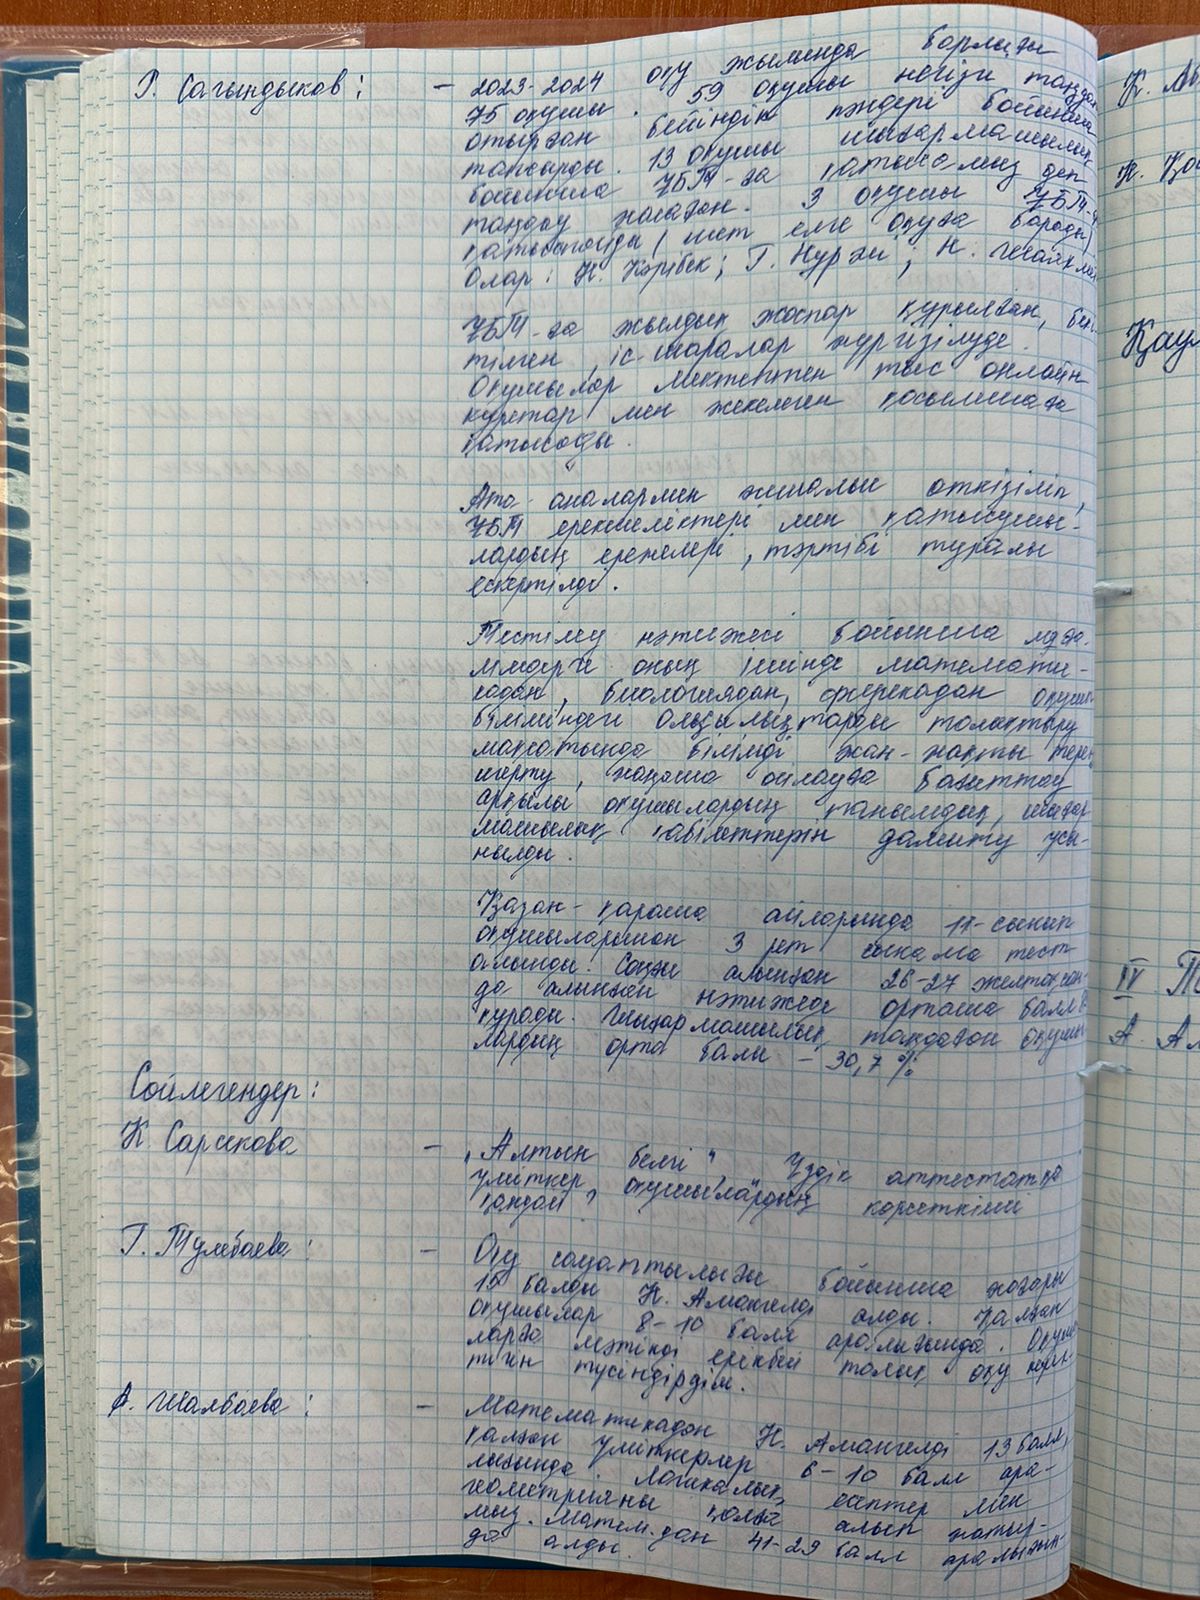 Г. Сагындыков: – 2023-2024 оқу жылында барлығы
75 оқушы. 59 оқушы негізгі таңдап
отырған бейіндік пәндері бойынша
тапсырды. 13 оқушы шығармашылық
бойынша ҰБТ-ға қатысамыз деп
таңдау жасаған. 3 оқушы ҰБТ-ға
қатыспайды (шет елге оқуға барады)
Олар: Н. Кәрібек; Г. Нұрәлі; Н.
ҰБТ-ға жылдық жоспар құрылған, бекі-
тілген, іс-шаралар жүргізілуде.
Оқушылар мектептен тыс онлайн
курстар мен жекелеген қосымшаға
қатысады.
Ата-аналармен жиналыс өткізіліп,
ҰБТ ерекшеліктері мен қатысушы-
лардың ережелері, тәртібі туралы
ескертілді.
Тестілеу нәтижесі бойынша мұға-
лімдерге оның ішінде математи-
кадан, биологиядан, физикадан оқушы
біліміндегі олқылықтарды толықтыру
мақсатында білімді жан-жақты терең
меңгерту, жаңаша ойлауға бағыттау
арқылы оқушылардың танымдық, шығар
машылық қабілеттерін дамыту ұсы-
нылды.
Қазан-қараша айларында 11-сынып
оқушыларынан 3 рет сынама тест
алынды. Соңғы алынған 26-27 желтоқсан-
да алынған нәтижеде орташа балл
құрады. Шығармашылық таңдаған оқушы
лардың орта балы – 30,7 %
Сөйлегендер:
К Сарсекова – „Алтын белгі", „Үздік аттестатқа"
үміткер оқушылардың көрсеткіші
қандай?
Г. Тулебаева: – Оқу сауаттылығы бойынша жоғары
10 балды Н. Амангелді алды. Қалған
оқушылар 8-10 балл аралығында. Оқушы
ларға мәтінді ерінбей толық оқу керек-
тігін түсіндірдім.
А. Шалбаева: – Математикадан Н. Амангелді 13 балл,
қалған үміткерлер 6-10 балл ара-
лығында. Логикалық есептер мен
геометрияны қолға алып жатыр-
мыз. Матем.дан 41-29 балл аралығын-
да алды.
К.
Н.
Қаул
IV
А.